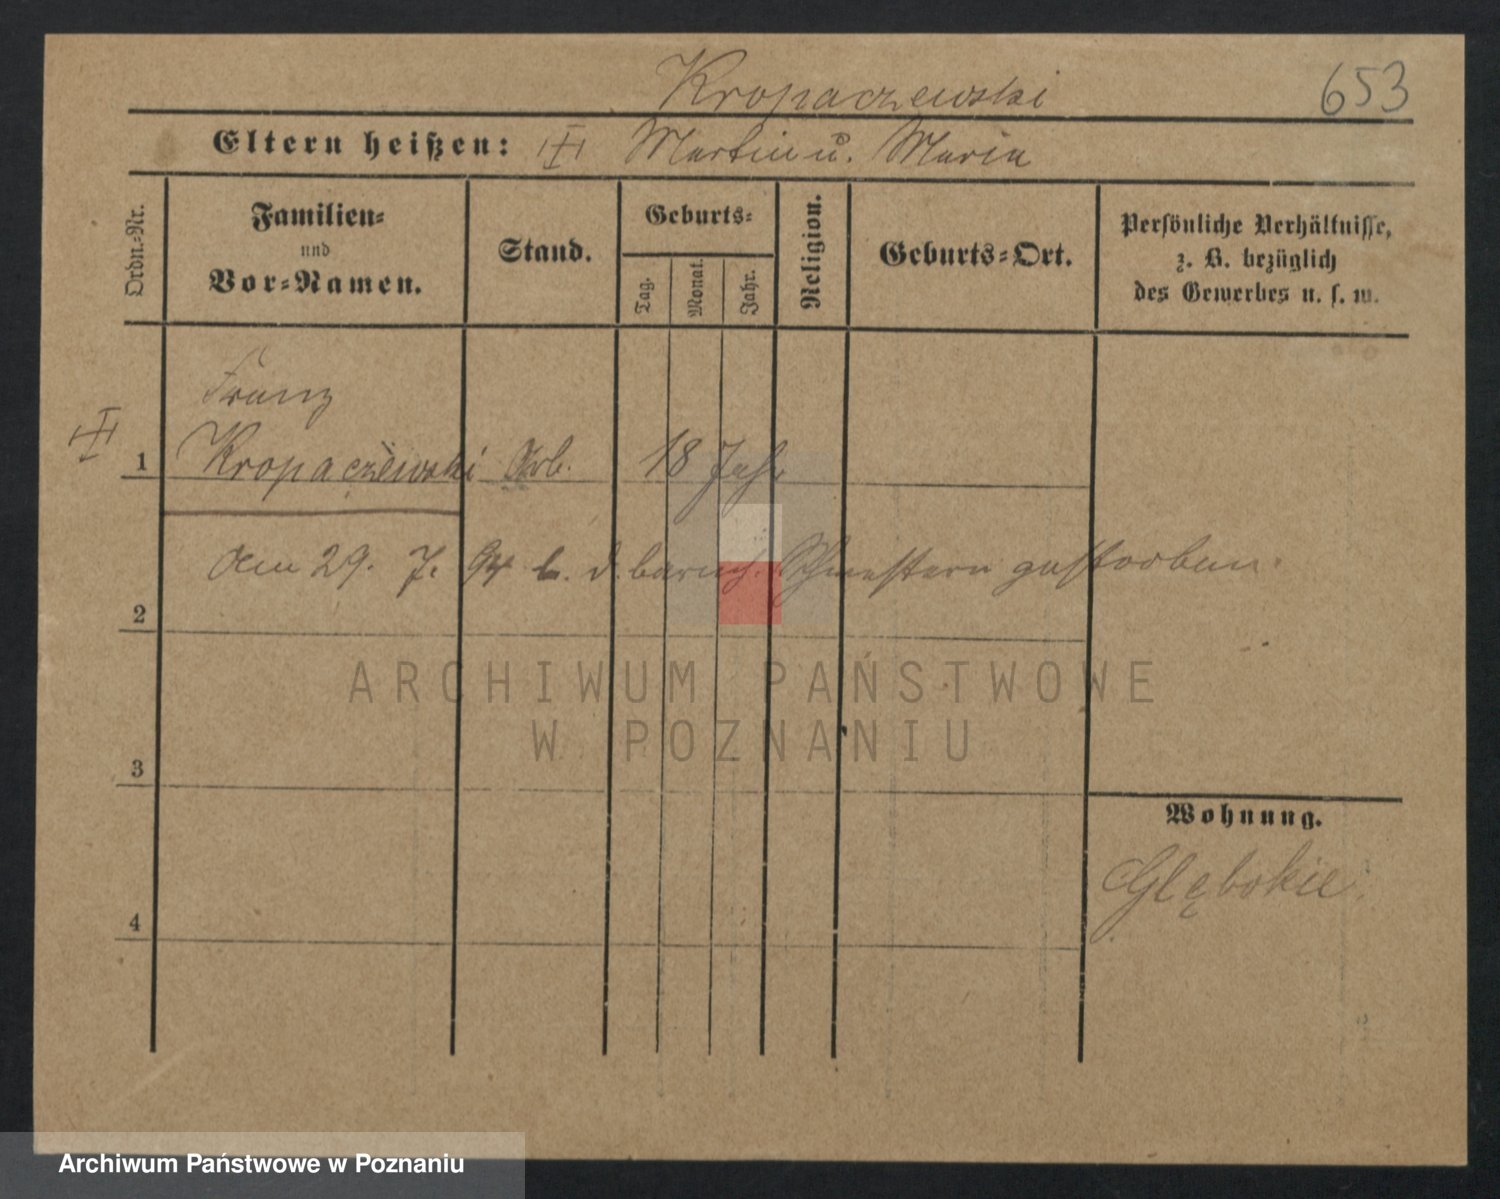 Kropaczewski 653
Eltern heißen: Martin u. Maria
Ordn.-Nr.
Familien-
und
Vor-Namen.
Stand.
Geburts-
Tag.
Monat.
Jahr.
Religion.
Geburts-Ort.
Persönliche Verhältnisse,
z. B. bezüglich
des Gewerbes u. s. w.
Franz
1 Kropaczewski Arb. 18 Jahr
am 29. 7. b. d. barmh. Schwestern gestorben.
2
ARCHIWUM PAŃSTWOWE
W POZNANIU
3
Wohnung.
Głębokie.
4
Archiwum Państwowe w Poznaniu